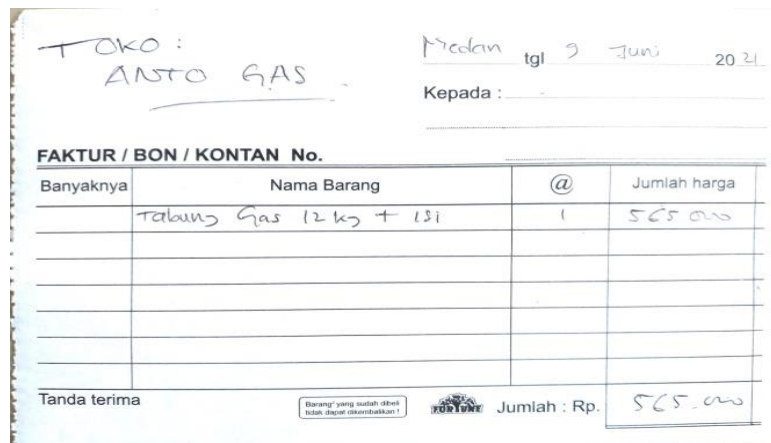 TOKO :
ANTO GAS
Medan tgl 9 Juni 20 21
Kepada :
FAKTUR / BON / KONTAN No.
Banyaknya Nama Barang @ Jumlah harga
Tabung Gas 12 kg + ISi 1 565 000
Tanda terima
Barang² yang sudah dibeli
tidak dapat dikembalikan !
FORTUNE
Jumlah : Rp. 565.000